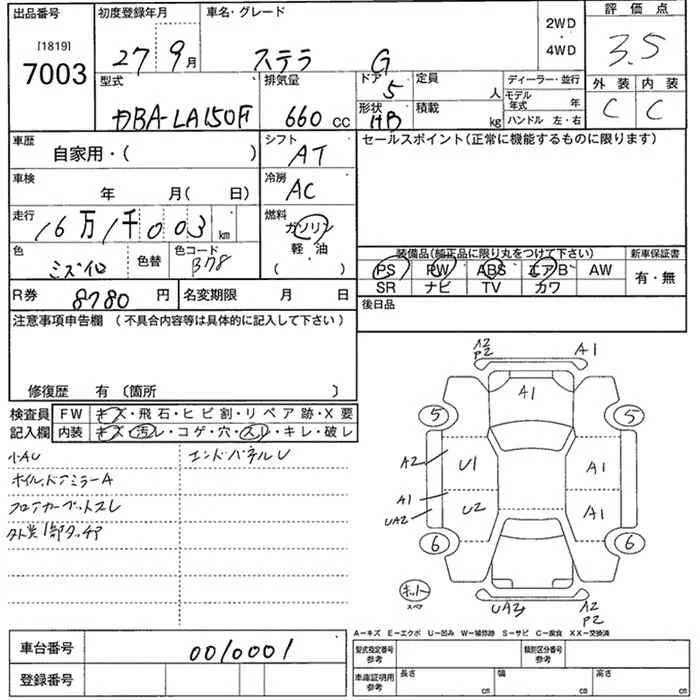 出品番号 初度登録年月 車名・グレード 2WD 4WD 評価点
[1819]
7003
27 9月 ステラ G 3.5
型式 排気量 ドア 定員 ディーラー・並行 外装 内装
DBA-LA150F 660cc 5 人 モデル年式 年 C C
形状 積載 ハンドル 左・右
HB kg
車歴 シフト セールスポイント(正常に機能するものに限ります)
自家用・( ) AT
車検 冷房
年 月( 日) AC
走行 燃料
16万1千003km ガソリン
軽・油
( )
色 色替 色コード 装備品(純正品に限り丸をつけて下さい) 新車保証書
ミズ色 B78 PS PW ABS エアB AW 有・無
SR ナビ TV カワ
R券 8780円 名変期限 月 日 後日品
注意事項申告欄(不具合内容等は具体的に記入して下さい)
修復歴 有〔箇所 〕
検査員 FW キズ・飛石・ヒビ割・リペア跡・X要
記入欄 内装 キズ・汚レ・コゲ・穴・スレ・キレ・破レ
小AU エンドパネルU
ホイル、ドアミラーA
フロアカーペットスレ
外装1部タッチア
A2
P2
A1
A1
5 5
A2 U1 A1
A1
UA2 U2 A1
6 6
UA3 A2
P2
A-キズ E-エクボ U-凹み W-補修跡 S-サビ C-腐食 XX-交換済
車台番号 0010001
登録番号
型式指定番号 参考 類別区分番号 参考
車庫証明用 参考 長さ cm 幅 cm 高さ cm